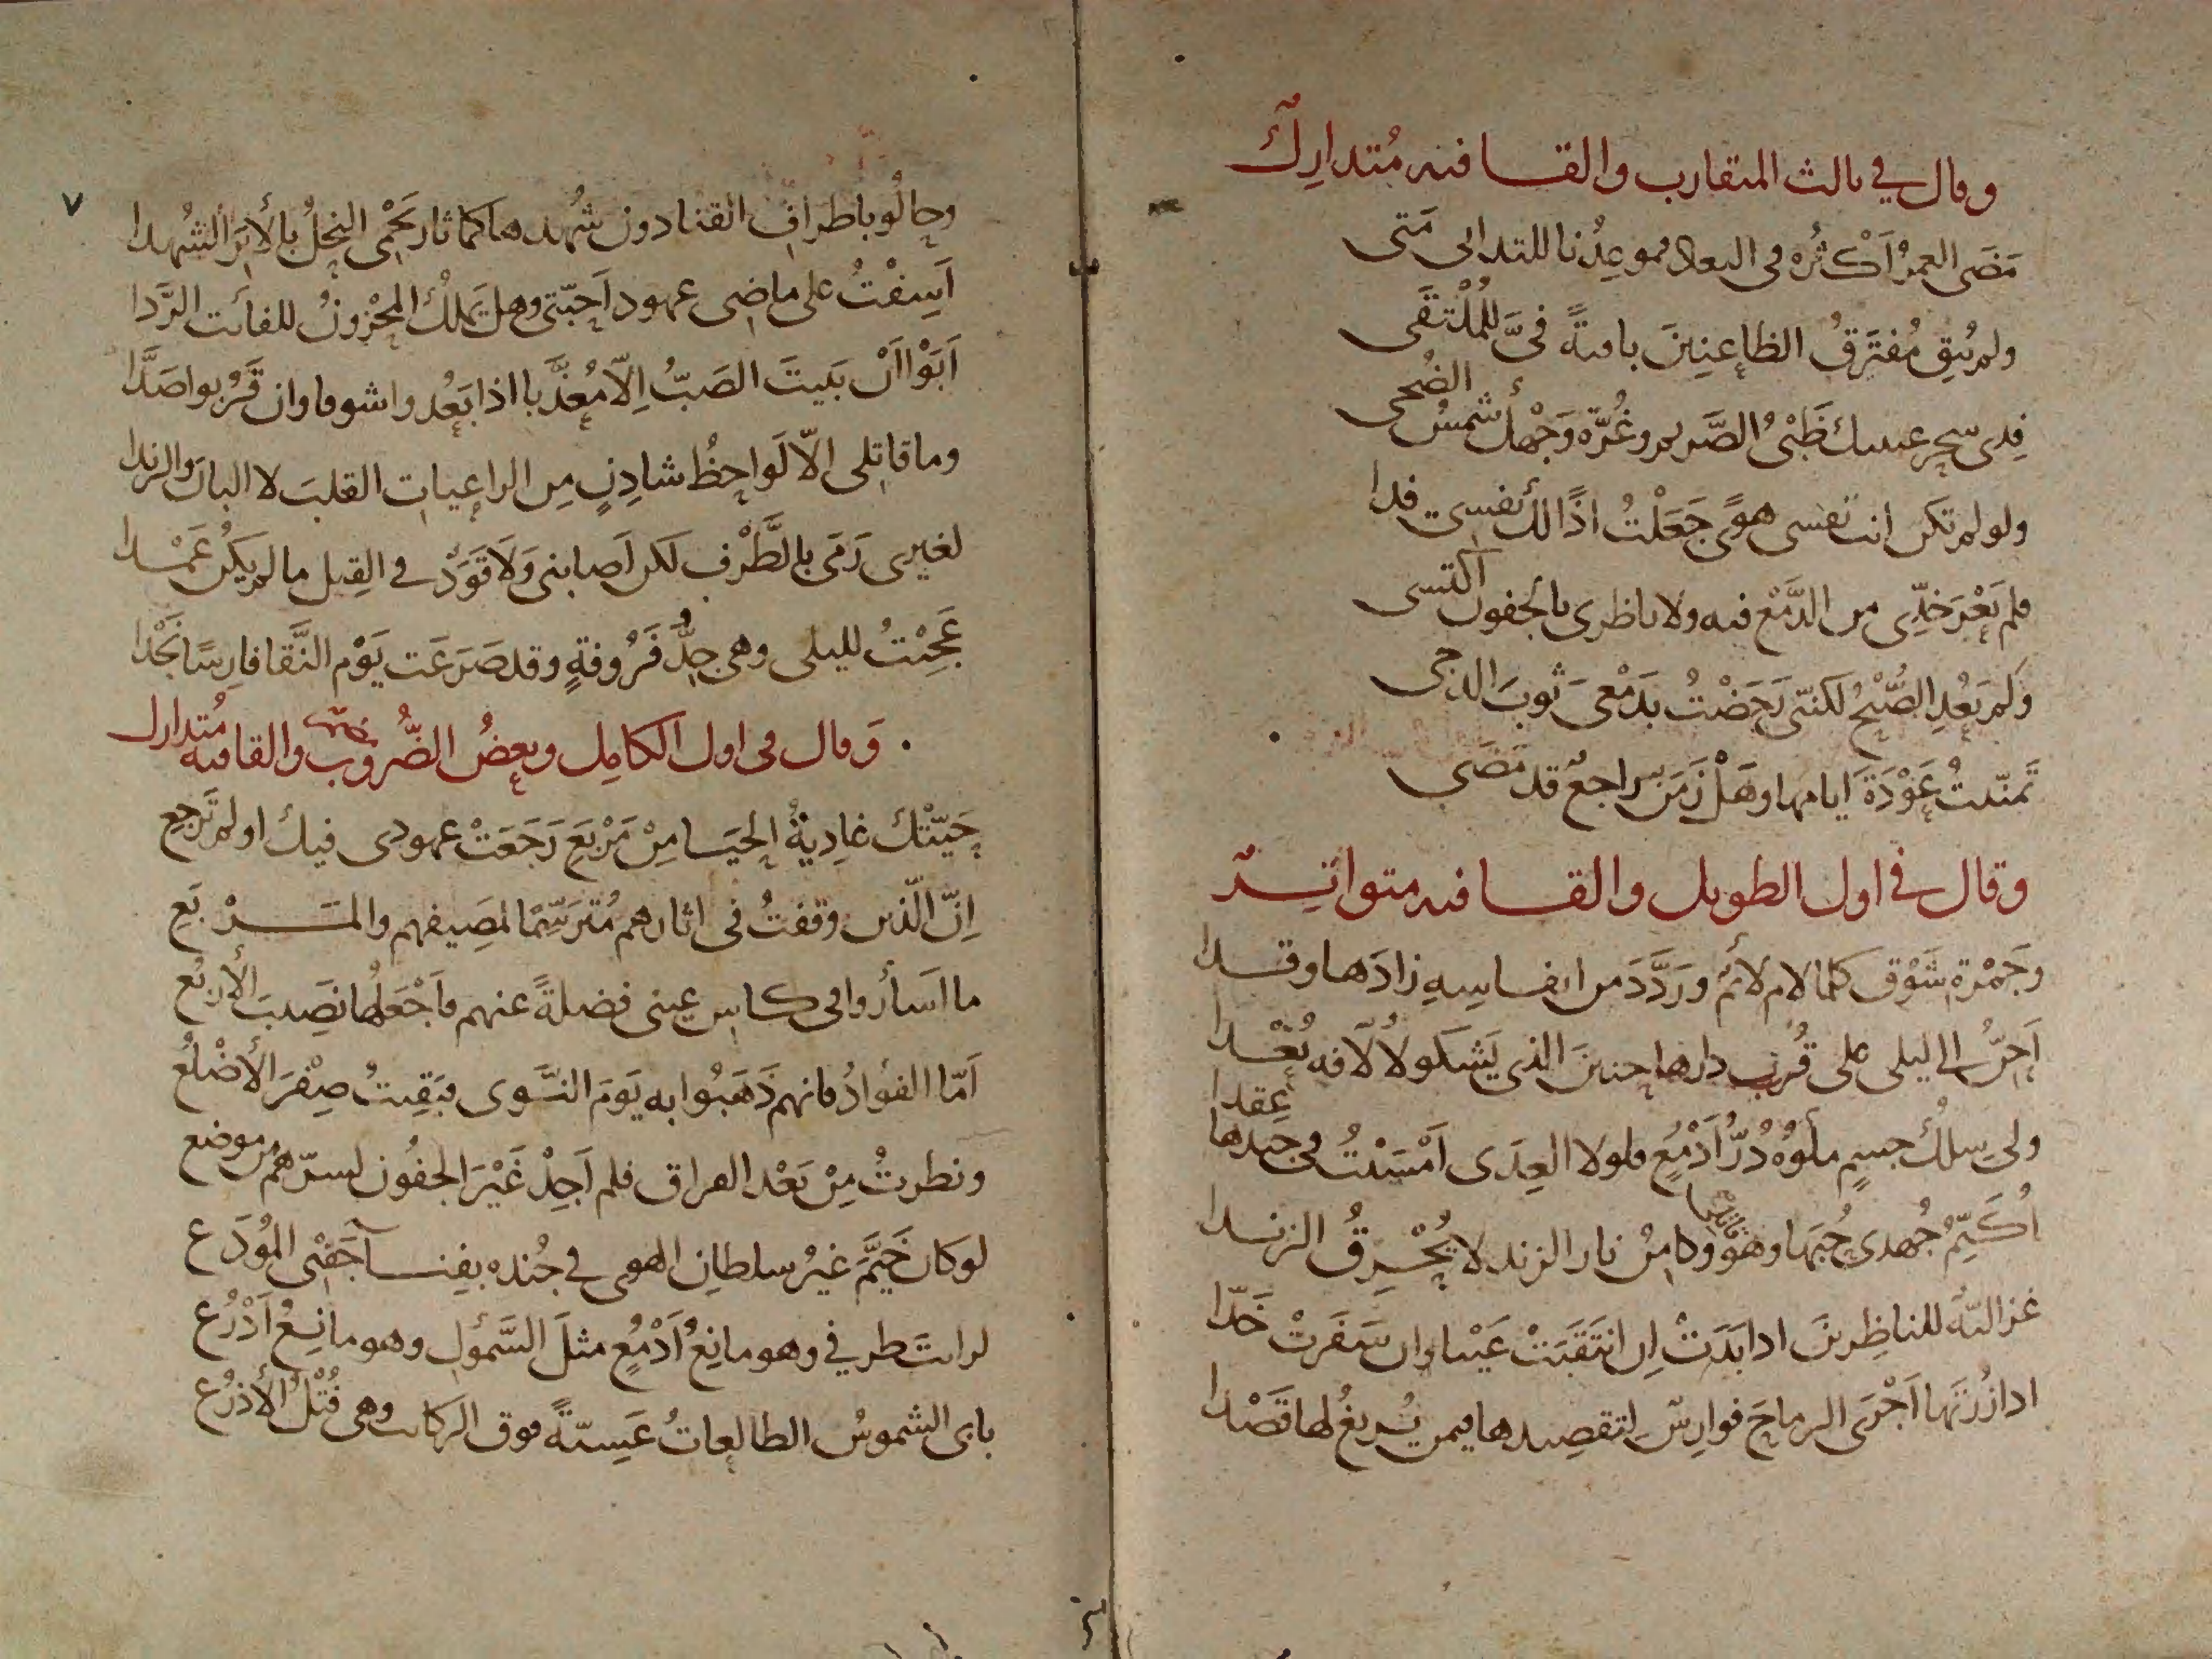 وقال في ثالث المتقارب والقافيه مُتدارِكٌ
مَضَى العمرُ اَكثرُه فى البعاد فموعِدُنا للتدانى مَتى
ولم يُبقِ مُفتَرَقُ الظاعِنِينَ باقيةً فىَّ للمُلْتَقَى
فِدى سحر عينيك ظَبْىُ الصَّريم وغُرّه وَجْهكَ شمسُ الضُحى
ولو لم تكن انت نفسى هوًى جَعَلْتُ اذًا لك نفسى فدا
فلم يَعْرَ خدّى من الدَّمْع فيه ولا ناظرى بالجفون اكتسى
وَلم يَعُدِ الصُّبْحُ لكنّى رَحَضْتُ بدَمْعى ثوبَ الدجى
تمنّيتُ عَوْدَةَ ايامها وهَلْ زَمَنٌ راجعٌ قد مَضَى
وقال في اول الطويل والقافيه متواترٌ
وجَمْرة شَوْق كلما لام لائمٌ ورَدَّدَ من انفاسِهِ زادَها وقدا
اَحِنُّ الى ليلى على قُرب دارها حنينَ الذى يَشكو لالّافه بُعْدا
ولى سِلْكُ جسمٍ ملؤهُ دُرُّ اَدْمُعٍ فلولا العِدَى اَمْسَيْتُ فى جيدها عِقدا
اُكَتِّمُ جُهدى حُبَّها وهو قاتلى وكامنُ نار الزند لا يُحْرِقُ الزندا
غزاليّةٌ للناظِرينَ اذا بَدَتْ اِن انتَقَبَتْ عَيْنا وان سَفَرَتْ خَدّا
اذا زُرْتَها اَجْرَى الرماحَ فوارِسٌ لتقصيدها فيمن يُريغُ لها قَصْدا
٧
وحالُو باطرافِ القنا دون شُهدها كما ثار يَحْمِى النحلُ بالأبَر الشُهدا
اَسِفْتُ على ماضى عهود اَحِبّتى وهل يَملِكُ المحْزونُ للفائت الرَّدا
اَبَوْا اَنْ يَبيتَ الصَبُّ اِلّا مُعَذَّبا اذا بَعُدوا شوقا وان قَرُبوا صَدّا
وما قاتِلى الّا لَواحِظُ شادِنٍ مِن الراعِياتِ القلبَ لا البانَ والرندا
لغيرى رَمَى بالطَّرْف لكن اَصابنى وَلَا قَوَدٌ فى القتل ما لم يكن عَمْدا
عَجِبْتُ لليلى وهى جِدُّ فَرُوقةٍ وقد صَرَعَت يَوْم النَّقا فارِسًا نَجْدا
وَقال فى اول الكامِل وبعضُ الضُّروب والقافيه مُتدارك
حَيّتْك غادِيةُ الحَيَا مِنْ مَرْبَعِ رَجَعَتْ عهودى فيك اولم تَرجِع
اِنّ الّذين وقفتُ فى اثارهم مُتَرَسِّمًا لمَصِيفهم والمَرْبَعِ
ما اَسأروا فى كاس عينى فضلةً عنهم فاَجْعَلُها نَصِيبَ الأربُع
اَمّا الفؤادُ فانهم ذَهَبُوا به يَوْمَ النَّوى فبَقِيتُ صِفْرَ الأضلُع
ونظرتُ مِنْ بَعْد الفراق فلم اَجِدْ غَيْرَ الجفُون لسرّهم من موضع
لو كان خَيَّمَ غيرُ سلطان الهوى فى جُنده بفِنا جَفنى المُودَع
لرايتَ طرفي وهو مانِعُ اَدْمُعٍ مثلَ السَّمؤل وهو مانِعُ اَدْرُع
بابى الشموسُ الطالِعاتُ عَشِيّةً فوق الركائب وهى فُتْلُ الأذرُع